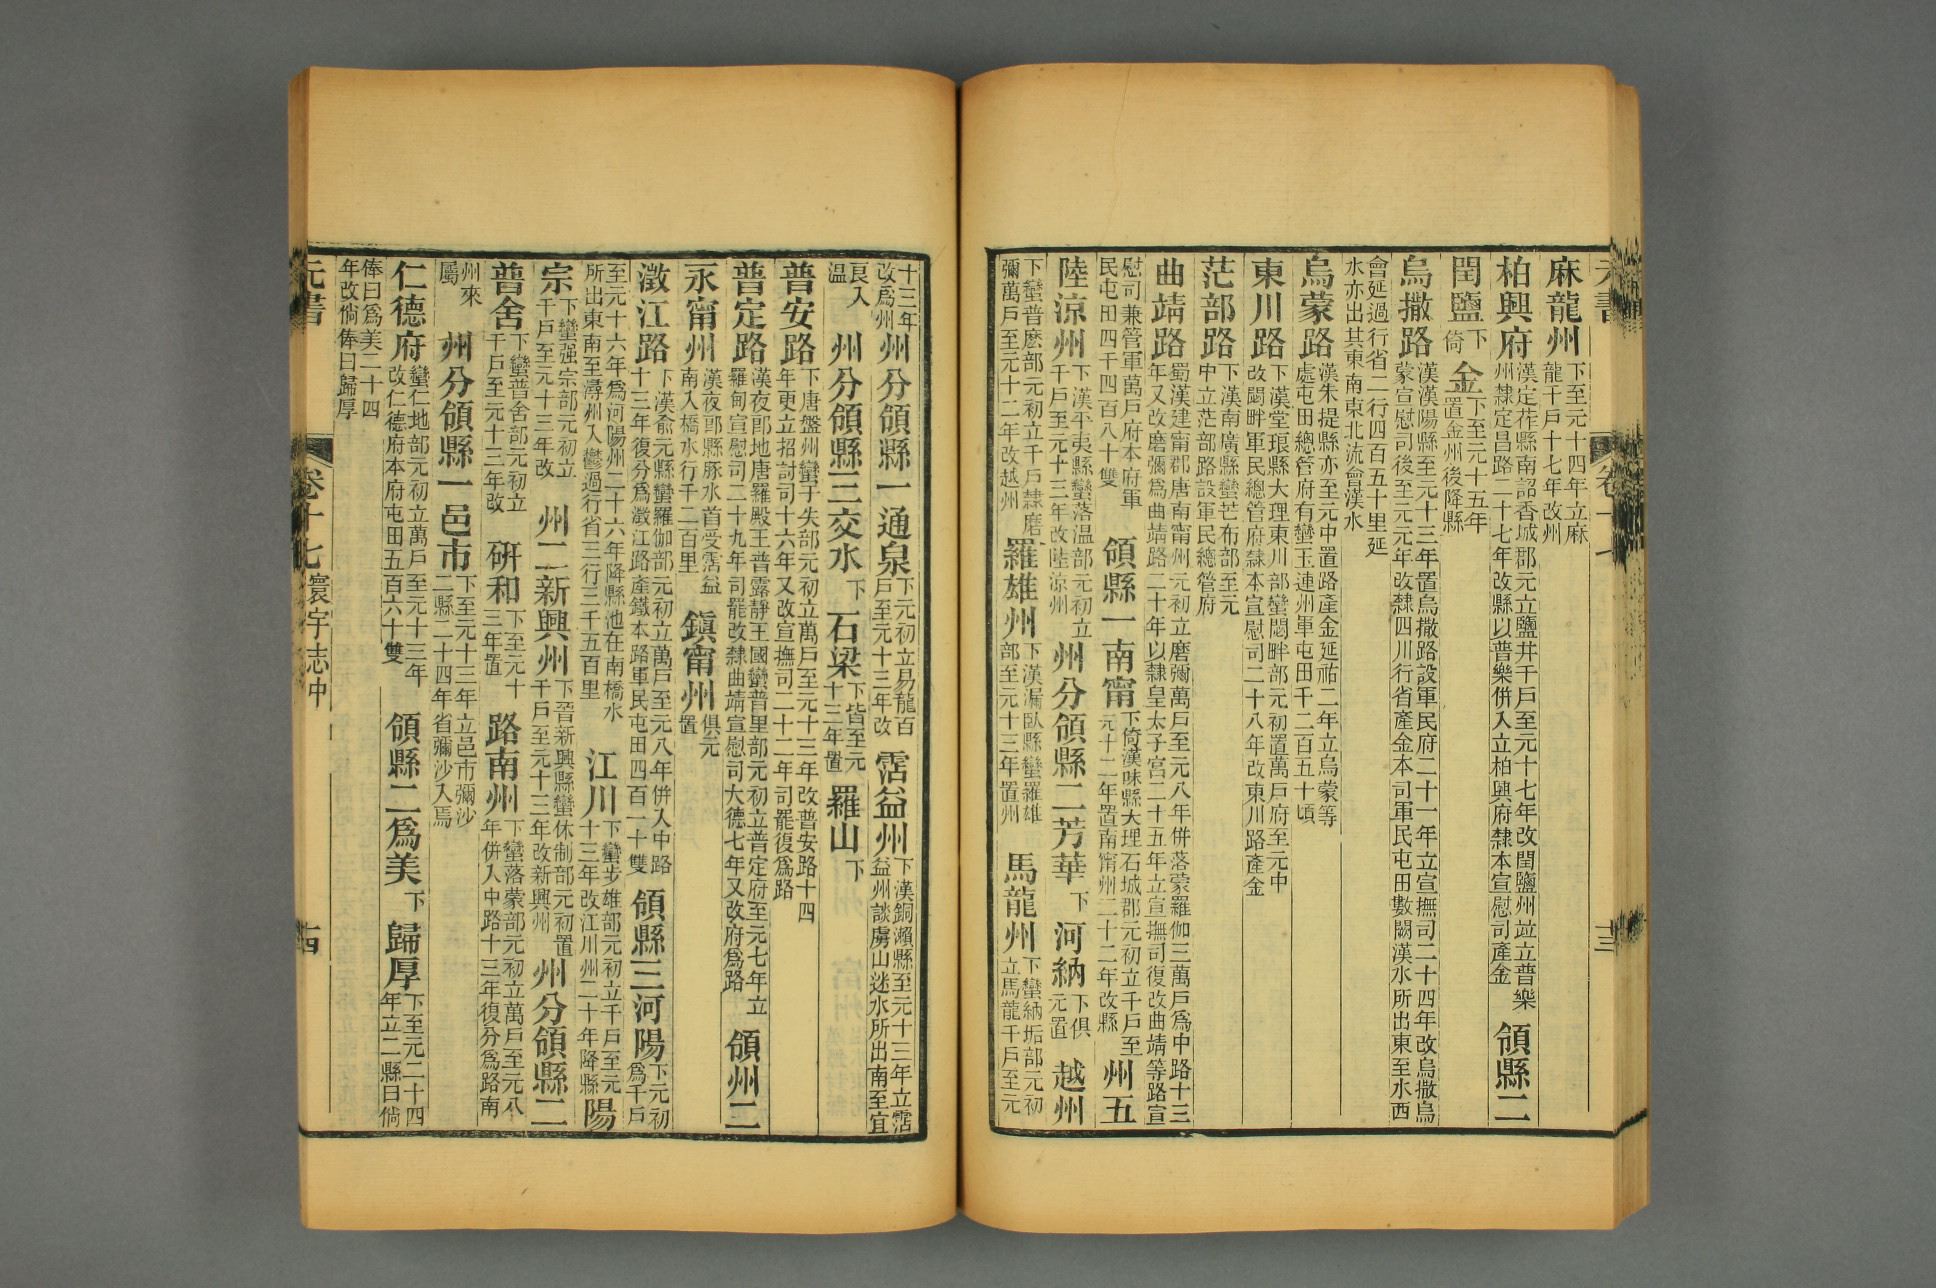 元書 卷十七 十三
麻龍州下至元十四年立麻龍千戶十七年改州
柏興府漢定莋縣南詔香城郡元立鹽井千戶至元十七年改閏鹽州竝立普樂州隸定昌路二十七年改縣以普樂併入立柏興府隸本宣慰司產金 領縣二
閏鹽下倚 金下至元十五年置金州後降縣
烏撒路漢漢陽縣至元十三年置烏撒路設軍民府二十一年立宣撫司二十四年改烏撒烏蒙宣慰司後至元元年改隸四川行省產金本司軍民屯田數闕漢水所出東至水西
會延過行省二行四百五十里延水亦出其東南東北流會漢水
烏蒙路漢朱提縣亦至元中置路產金延祐二年立烏蒙等處屯田總管府有蠻玉連州軍屯田千二百五十頃
東川路下漢堂琅縣大理東川部蠻閟畔部元初置萬戶府至元中改閟畔軍民總管府隸本宣慰司二十八年改東川路產金
茫部路下漢南廣縣蠻芒布部至元中立茫部路設軍民總管府
曲靖路蜀漢建甯郡唐南甯州元初立磨彌萬戶至元八年併落蒙羅伽三萬戶爲中路十三年又改磨彌爲曲靖路二十年以隸皇太子宮二十五年立宣撫司復改曲靖等路宣
慰司兼管軍萬戶府本府軍民屯田四千四百八十雙 領縣一南甯下倚漢味縣大理石城郡元初立千戶至元十二年置南甯州二十二年改縣 州五
陸涼州下漢平夷縣蠻落温部元初立千戶至元十三年改陸涼州 州分領縣二芳華下 河納下俱元置 越州
下蠻普麽部元初立千戶隸磨彌萬戶至元十二年改越州 羅雄州下漢漏臥縣蠻羅雄部至元十三年置州 馬龍州下蠻納垢部元初立馬龍千戶至元
十三年改爲州 州分領縣一通泉下元初立易龍百戶至元十三年改 霑益州下漢銅瀨縣至元十三年立霑益州談虜山迷水所出南至宜
良入温 州分領縣三交水下 石梁下皆至元十三年置 羅山下
普安路下唐盤州蠻于失部元初立萬戶至元十三年改普安路十四年更立招討司十六年又改宣撫司二十二年司罷復爲路
普定路漢夜郎地唐羅殿王普露靜王國蠻普里部元初立普定府至元七年立羅甸宣慰司二十九年司罷改隸曲靖宣慰司大德七年又改府爲路 領州二
永甯州漢夜郎縣豚水首受霑益南入橋水行千二百里 鎮甯州俱元置
澂江路下漢俞元縣蠻羅伽部元初立萬戶至元八年併入中路十三年復分爲澂江路產鐵本路軍民屯田四百一十雙 領縣三河陽下元初爲千戶
至元十六年爲河陽州二十六年降縣池在南橋水所出東南至潯州入鬱過行省三行三千五百里 江川下蠻步雄部元初立千戶至元十三年改江川州二十年降縣 陽
宗下蠻强宗部元初立千戶至元十三年改 州二新興州下晉新興縣蠻休制部元初置千戶至元十三年改新興州 州分領縣二
普舍下蠻普舍部元初立千戶至元十三年改 研和下至元十三年置 路南州下蠻落蒙部元初立萬戶至元八年併入中路十三年復分爲路南
州來屬 州分領縣一邑市下至元十三年立邑市彌沙二縣二十四年省彌沙入焉
仁德府蠻仁地部元初立萬戶至元十三年改仁德府本府屯田五百六十雙 領縣二爲美下 歸厚下至元二十四年立二縣曰倘
俸曰爲美二十四年改倘俸曰歸厚
元書 卷十七 寰宇志中 十四